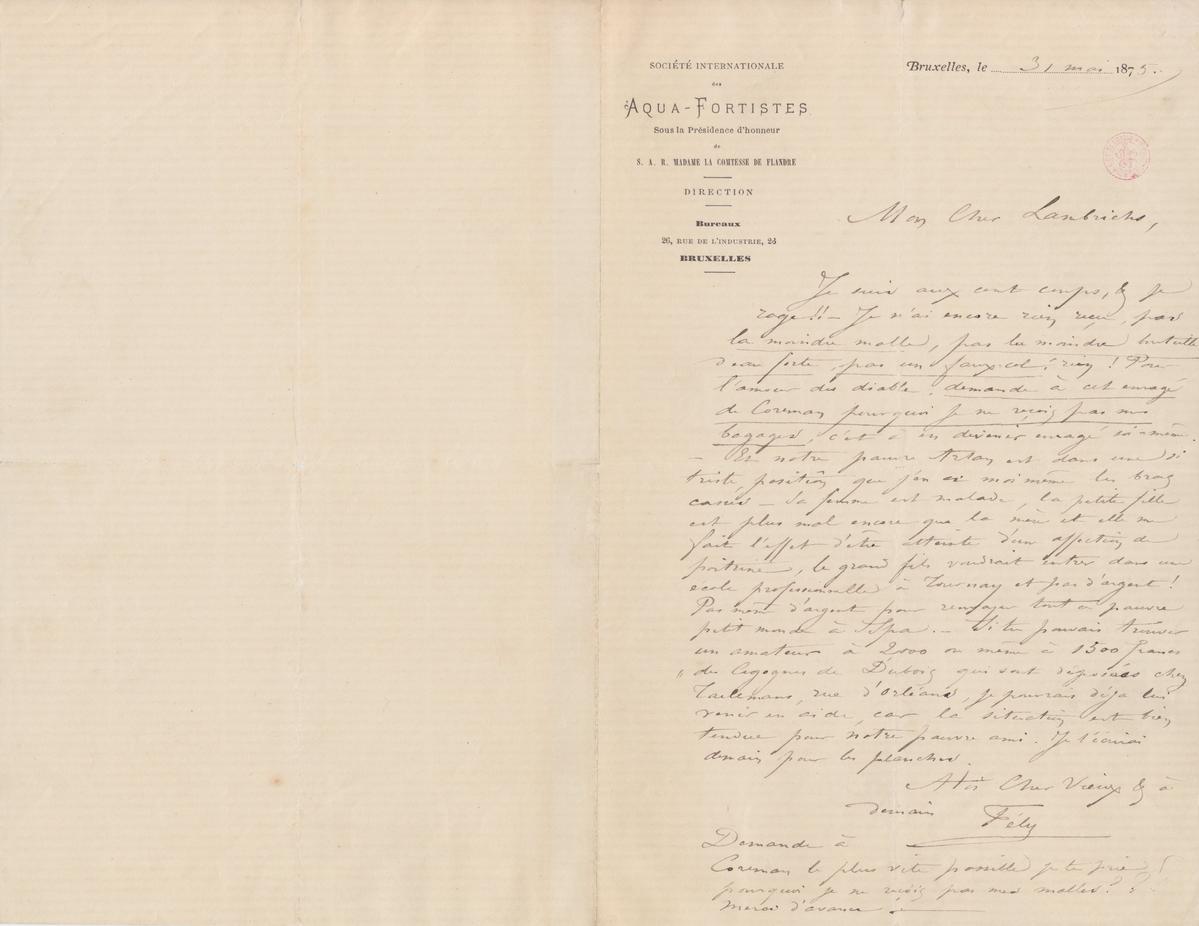 SOCIÉTÉ INTERNATIONALE
des
AQUA-FORTISTES
Sous la Présidence d'honneur
de
S. A. R. MADAME LA COMTESSE DE FLANDRE
DIRECTION
Bureaux
26, RUE DE L'INDUSTRIE, 28
BRUXELLES
Bruxelles, le 31 mai 1875.
Mon Cher Lambrichs,
Je suis aux cent coups, & je
rage!! – Je n'ai encore rien reçu, pas
la moindre malle, pas la moindre bouteille
d'eau forte, pas un faux-col! rien! Pour
l'amour du diable, demande à cet enragé
de Coreman pourquoi je ne reçois pas mes
bagages, c'est à en devenir enragé soi-même.
– Et notre pauvre Artan est dans une si
triste position que j'en ai moi même les bras
cassés – Sa femme est malade, la petite fille
est plus mal encore que la mère et elle me
fait l'effet d'être atteinte d'un affection de
poitrine, le grand fils voudrait entrer dans une
école professionnelle à Tournay et pas d'argent!
Pas même d'argent pour renvoyer tout ce pauvre
petit monde à Spa. – Si tu pouvais trouver
un amateur à 2000 ou même à 1500 francs
" des Cigognes de Dubois qui sont déposées chez
Taelemans, rue d'Orléans, je pourrais déjà lui
venir en aide, car la situation est bien
tendue pour notre pauvre ami. Je t'écrirai
demain pour les planches.
A toi Cher Vieux & à
demain
Fély
Demande à
Coreman le plus vite possible je te prie!
pourquoi je ne reçois pas mes malles??
Merci d'avance